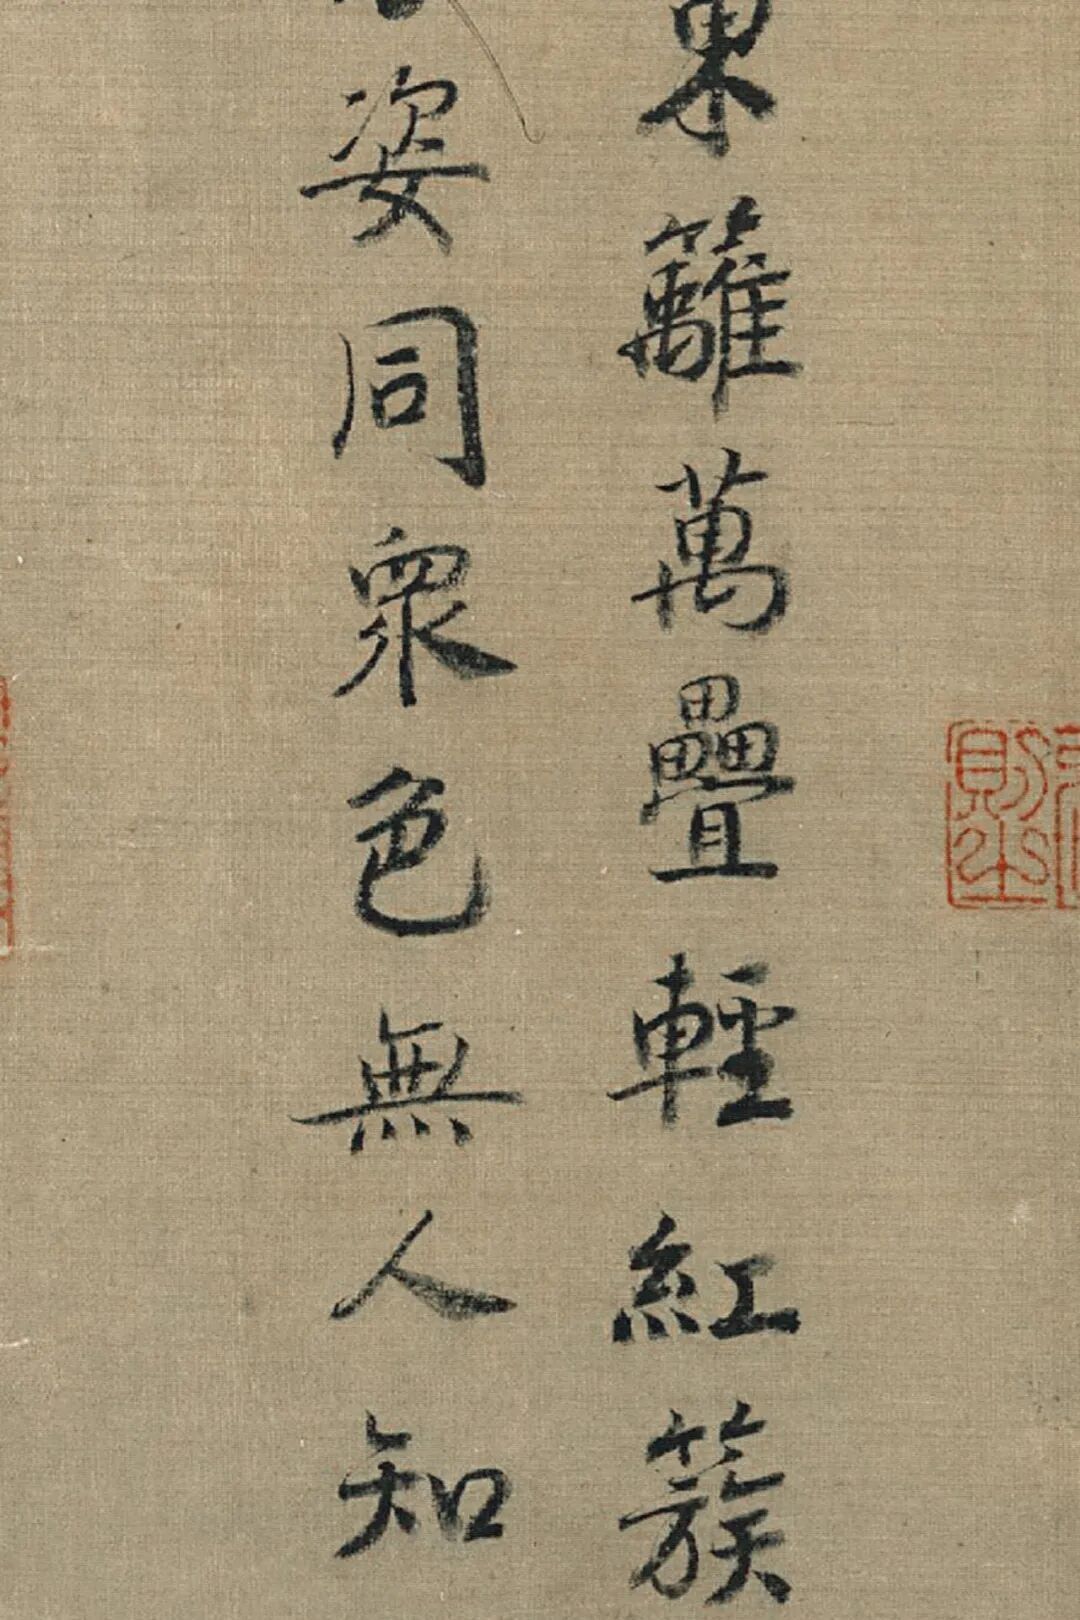 東籬萬疊輕紅簇
姿同衆色無人知